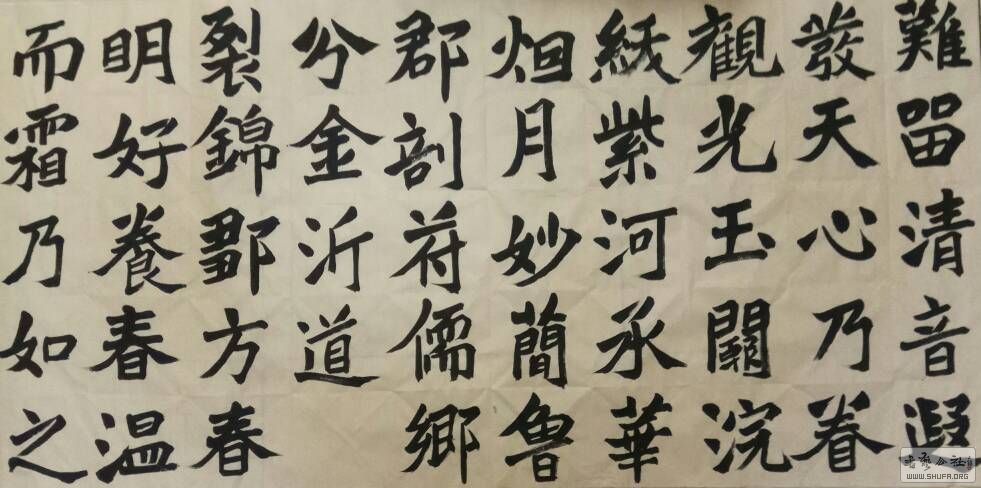 難留清音遐
發天心乃眷
觀光玉闕浣
紱紫河承華
烟月妙簡魯
郡剖符儒鄉
分金沂道
裂錦鄒方春
明好養春温
而霜乃如之
书艺公社
WWW.SHUFA.ORG